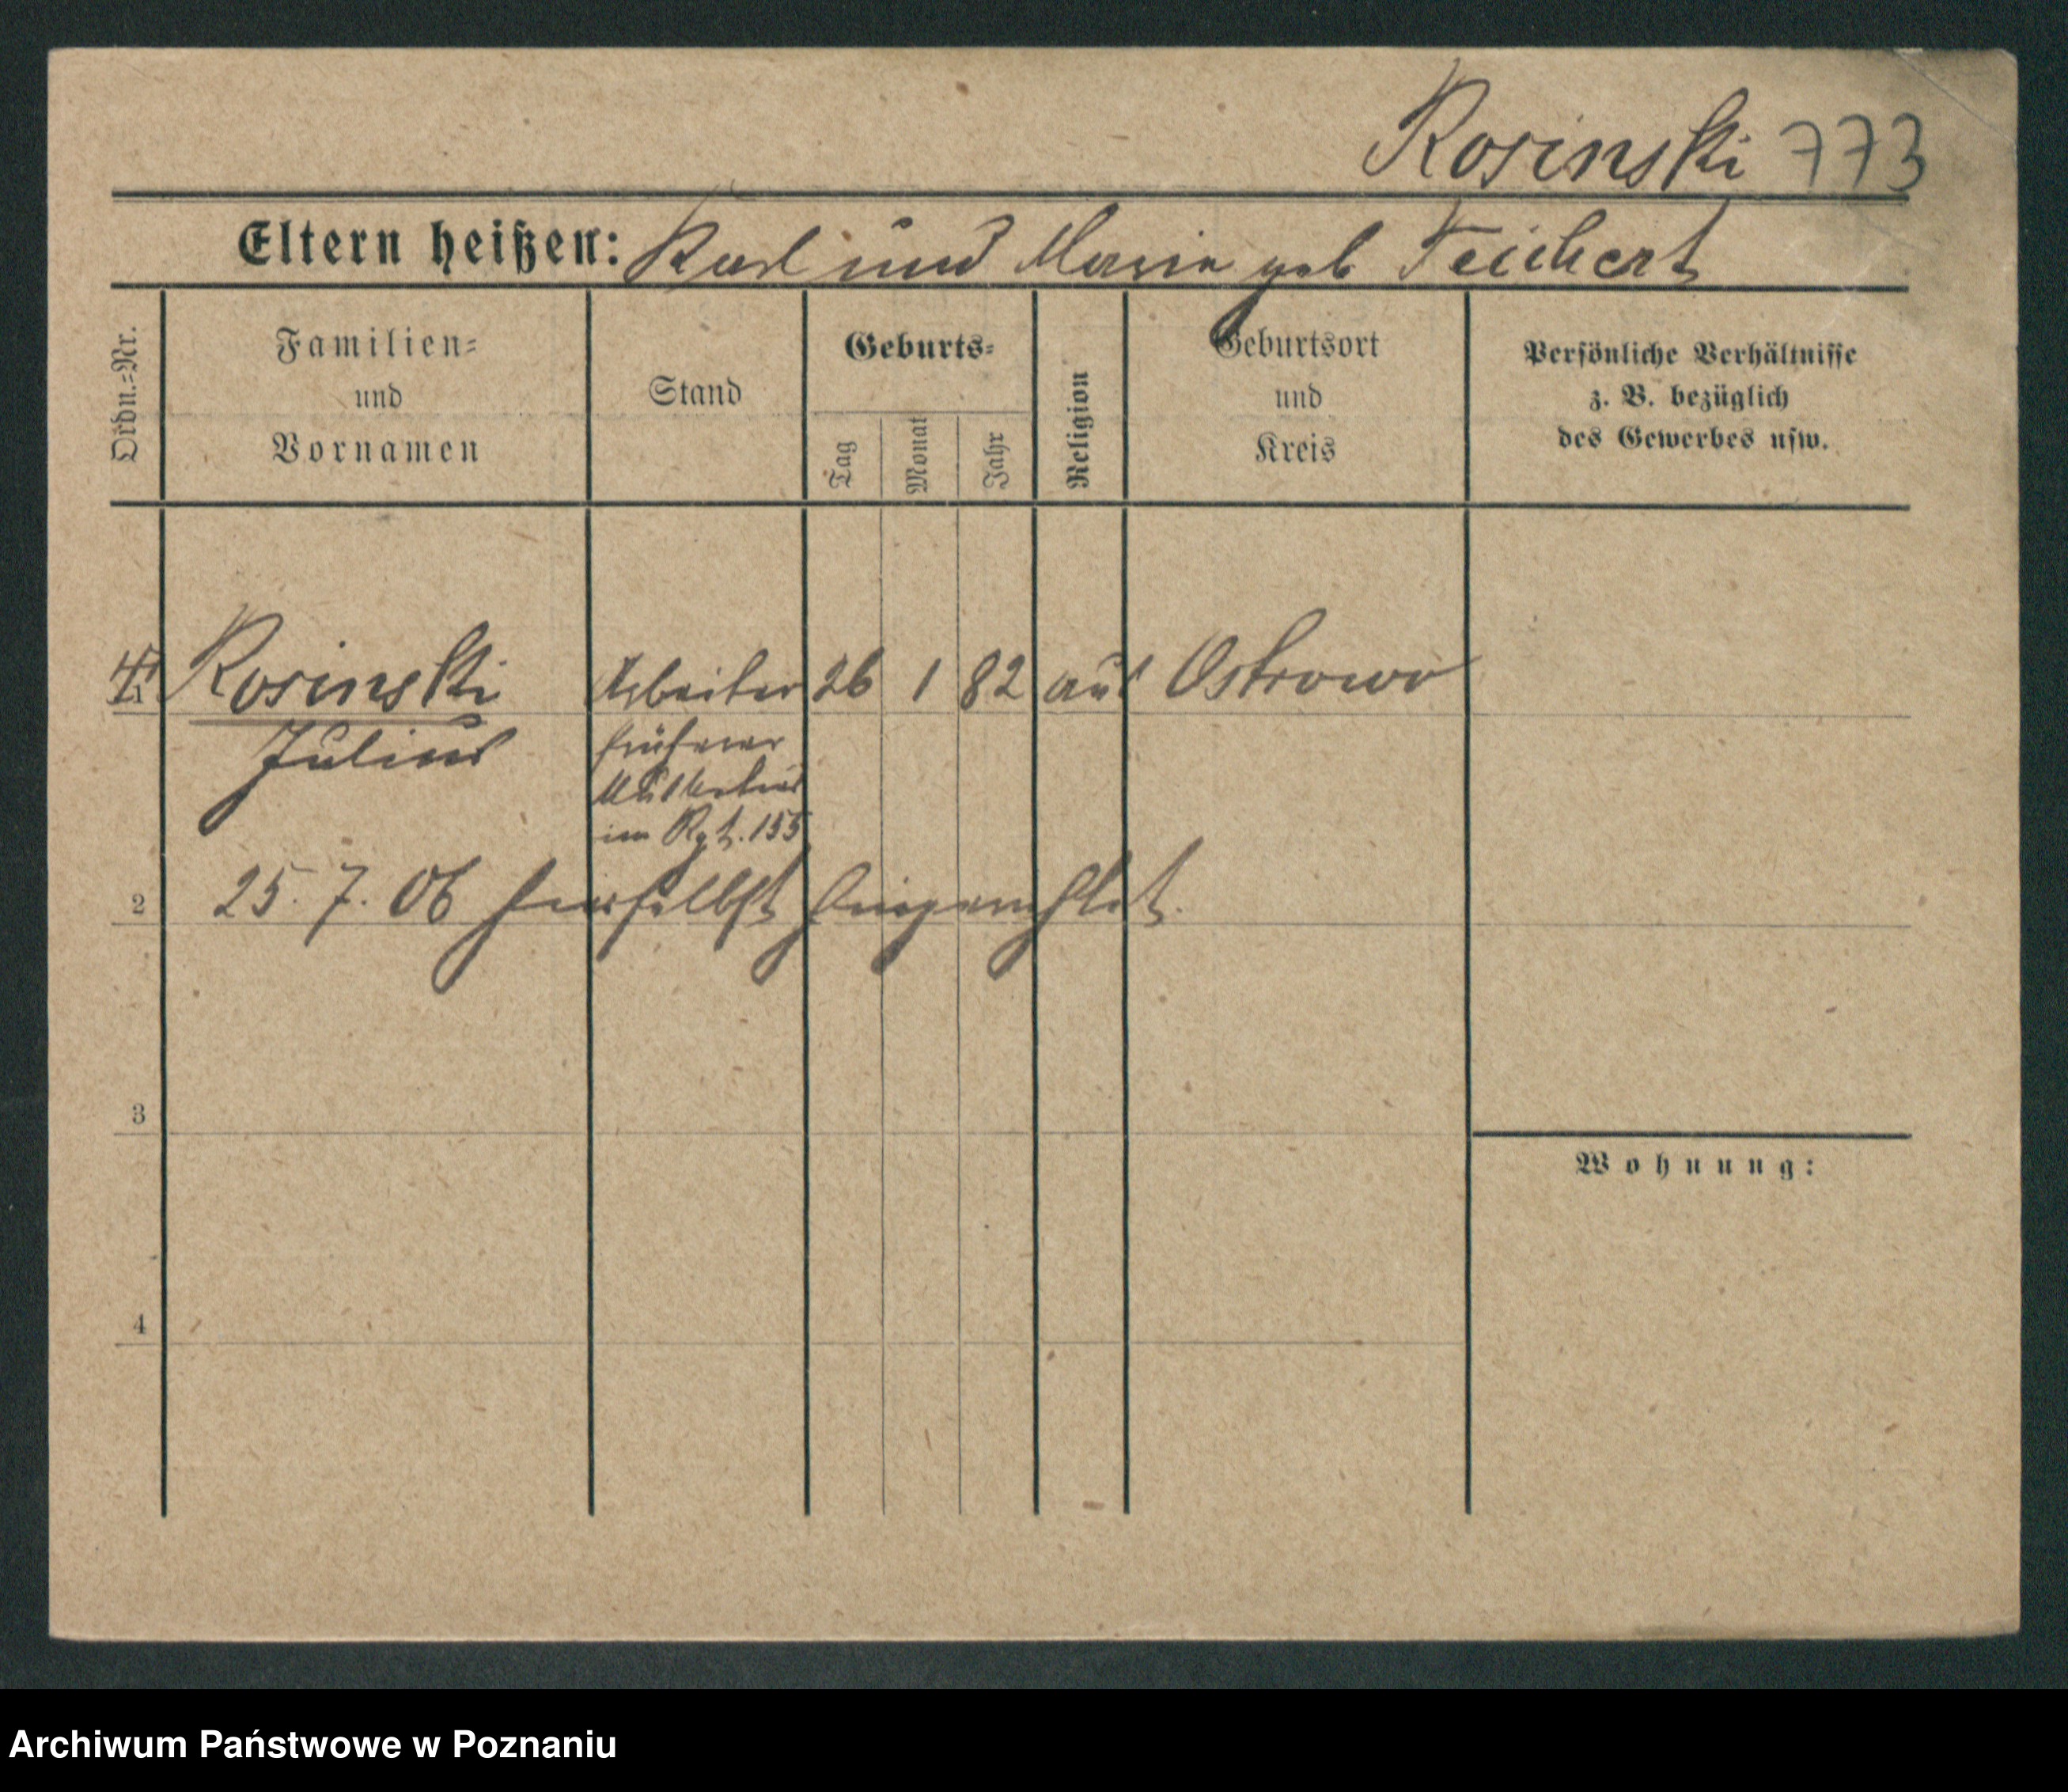 Rosinski 773
Eltern heißen: Karl und Maria geb Teichert
Ordn.-Nr.
Familien-
und
Vornamen
Stand
Geburts-
Tag
Monat
Jahr
Religion
Geburtsort
und
Kreis
Persönliche Verhältnisse
z. B. bezüglich
des Gewerbes usw.
Rosinski Arbeiter 26 1 82 aus Ostrowo
Julius früherer
Musketier
im Rgt. 155
2 25. 7. 06 hierselbst hingerichtet.
3
Wohnung:
4
Archiwum Państwowe w Poznaniu